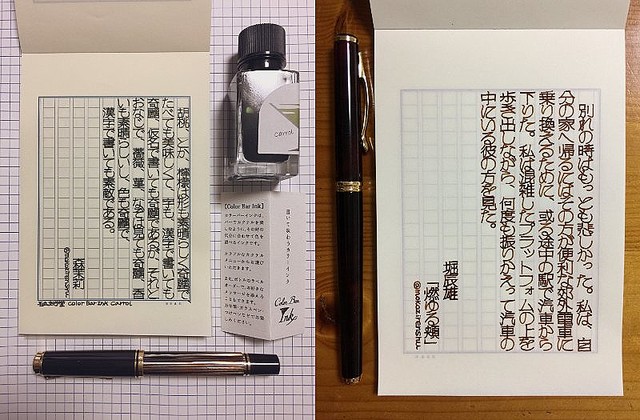 胡桃、とか、檸檬は形も素晴らしく奇麗、
たべても美味しくて、字も、漢字で書いても
奇麗、仮名で書いても奇麗であるが、それと
おなじで、薔薇、菫、なぞは見ても奇麗、香
いも素晴らしいし、色も奇麗で、
漢字で書いても素敵である。
森茉莉
Color Bar Ink Carrol
carrol
書いて味わうカラーインク
Color Bar
Ink
【Color Bar Ink】
カラーバーインクは、
別れの時はもっとも悲しかった。私は、自
分の家へ帰るにはその方が便利な郊外電車に
乗り換えるために、或る途中の駅で汽車から
下りた。私は混雑したプラットフォームの上を
歩き出しながら、何度も振りかえって汽車の
中にいる彼の方を見た。
堀辰雄
「燃ゆる頬」